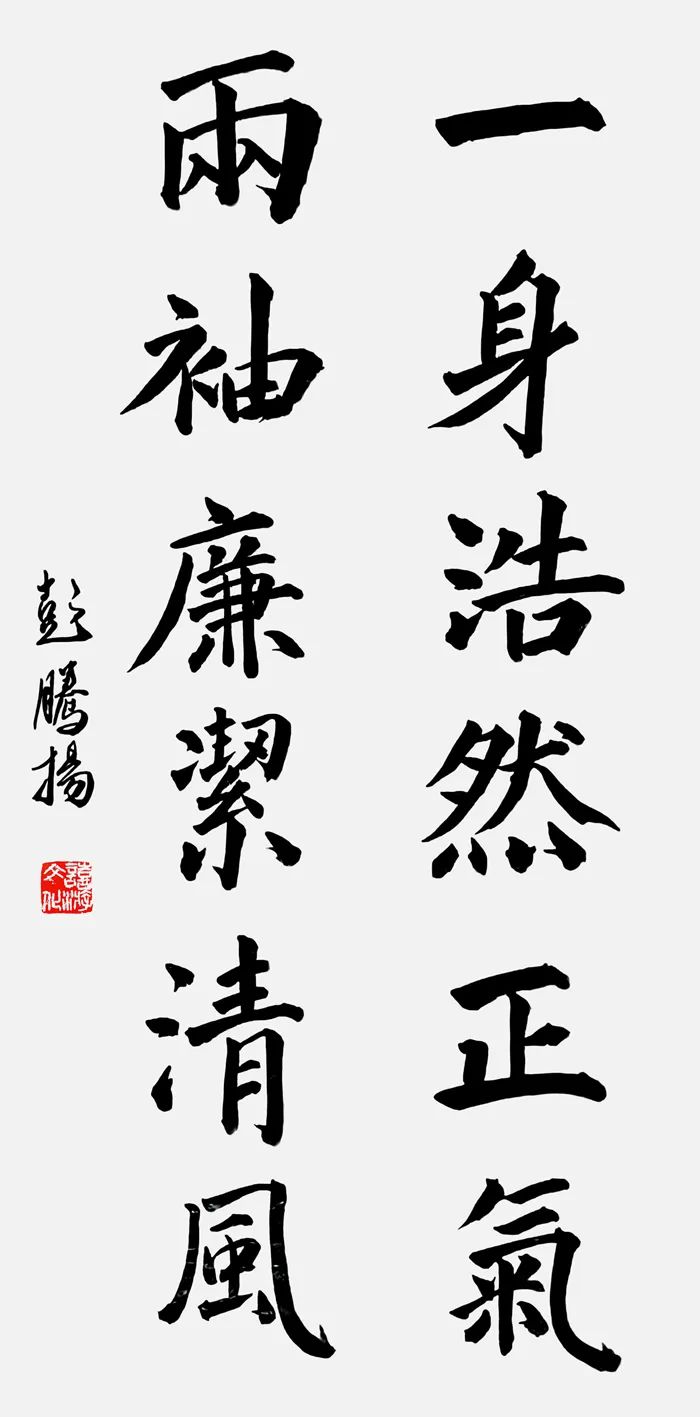 一身浩然正氣
兩袖廉潔清風
彭騰揚